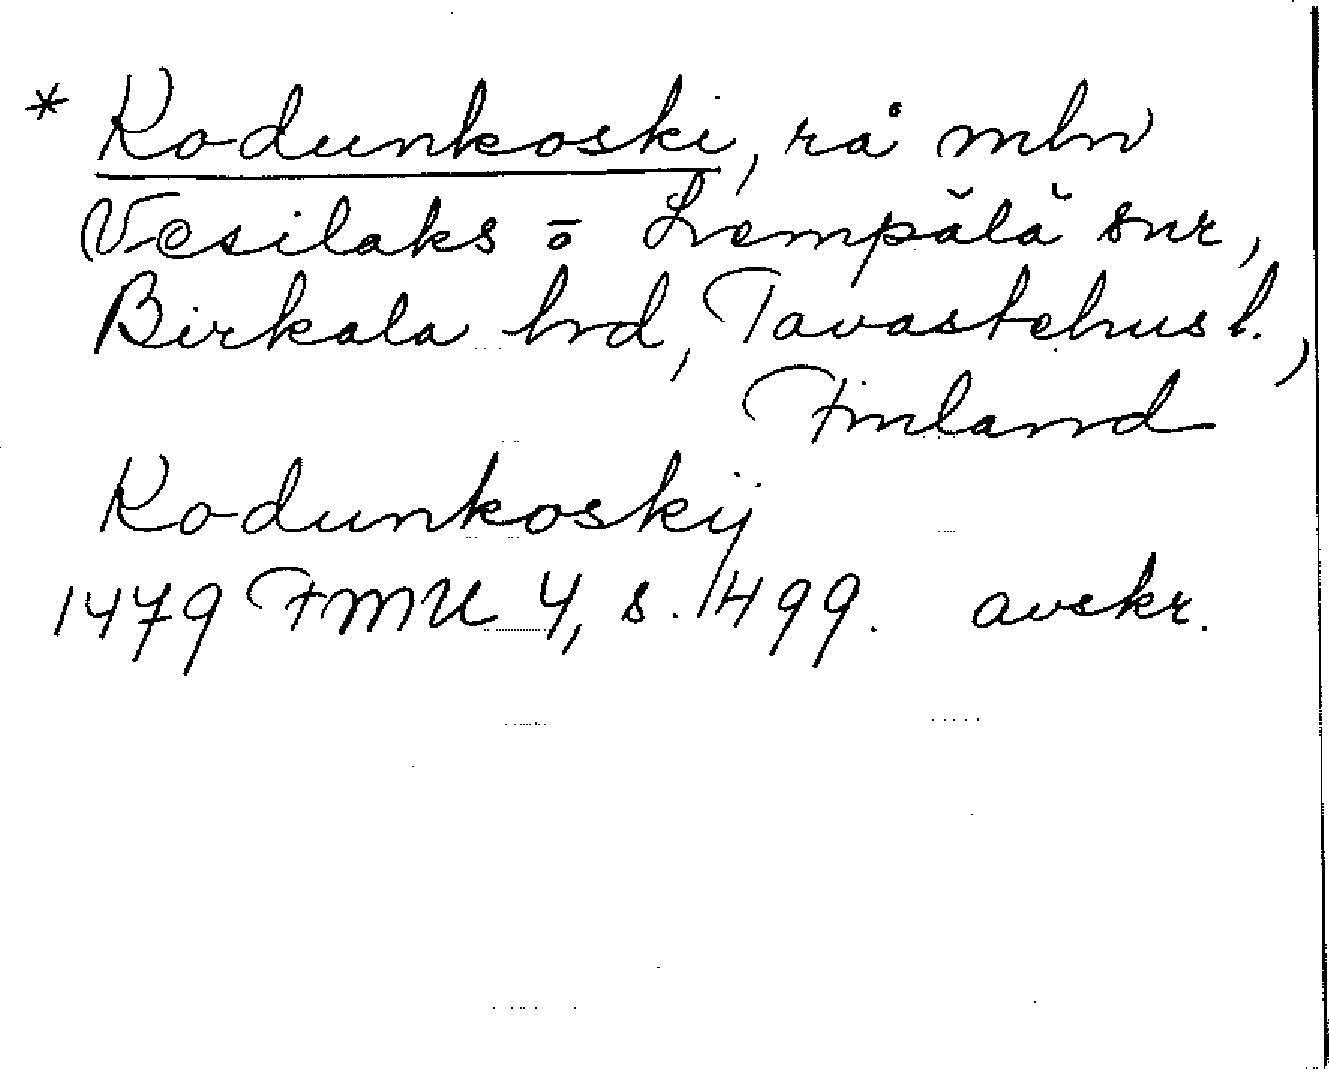 * Kodunkoski, rå mln
Vesilaks ō Lempälä snr,
Birkala hrd, Tavastehus l.,
Finland
Kodunkoskij
1479 FMU 4, s. 499. avskr.